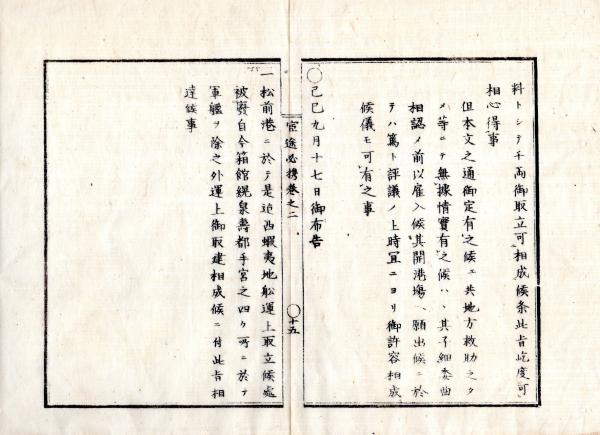 料トシテ千両御取立可相成候条此旨屹度可
相心得事
但本文之通御定有之候ヱ共地方救助之タ
メ等ニテ無據情實有之候ハヽ其子細委曲
相認メ前以雇入候其開港場ヘ願出候ニ於
テハ篤ト評議ノ上時宜ニヨリ御許容相成
候儀モ可有之事
〇己巳九月十七日御布告
宦途必携巻之二
〇十五
一松前港ニ於テ是迄西蝦夷地舩運上取立候處
被廢自今箱館幌泉壽都手宮之四ケ所ニ於テ
軍艦ヲ除之外運上御取建相成候ニ付此旨相
達候事